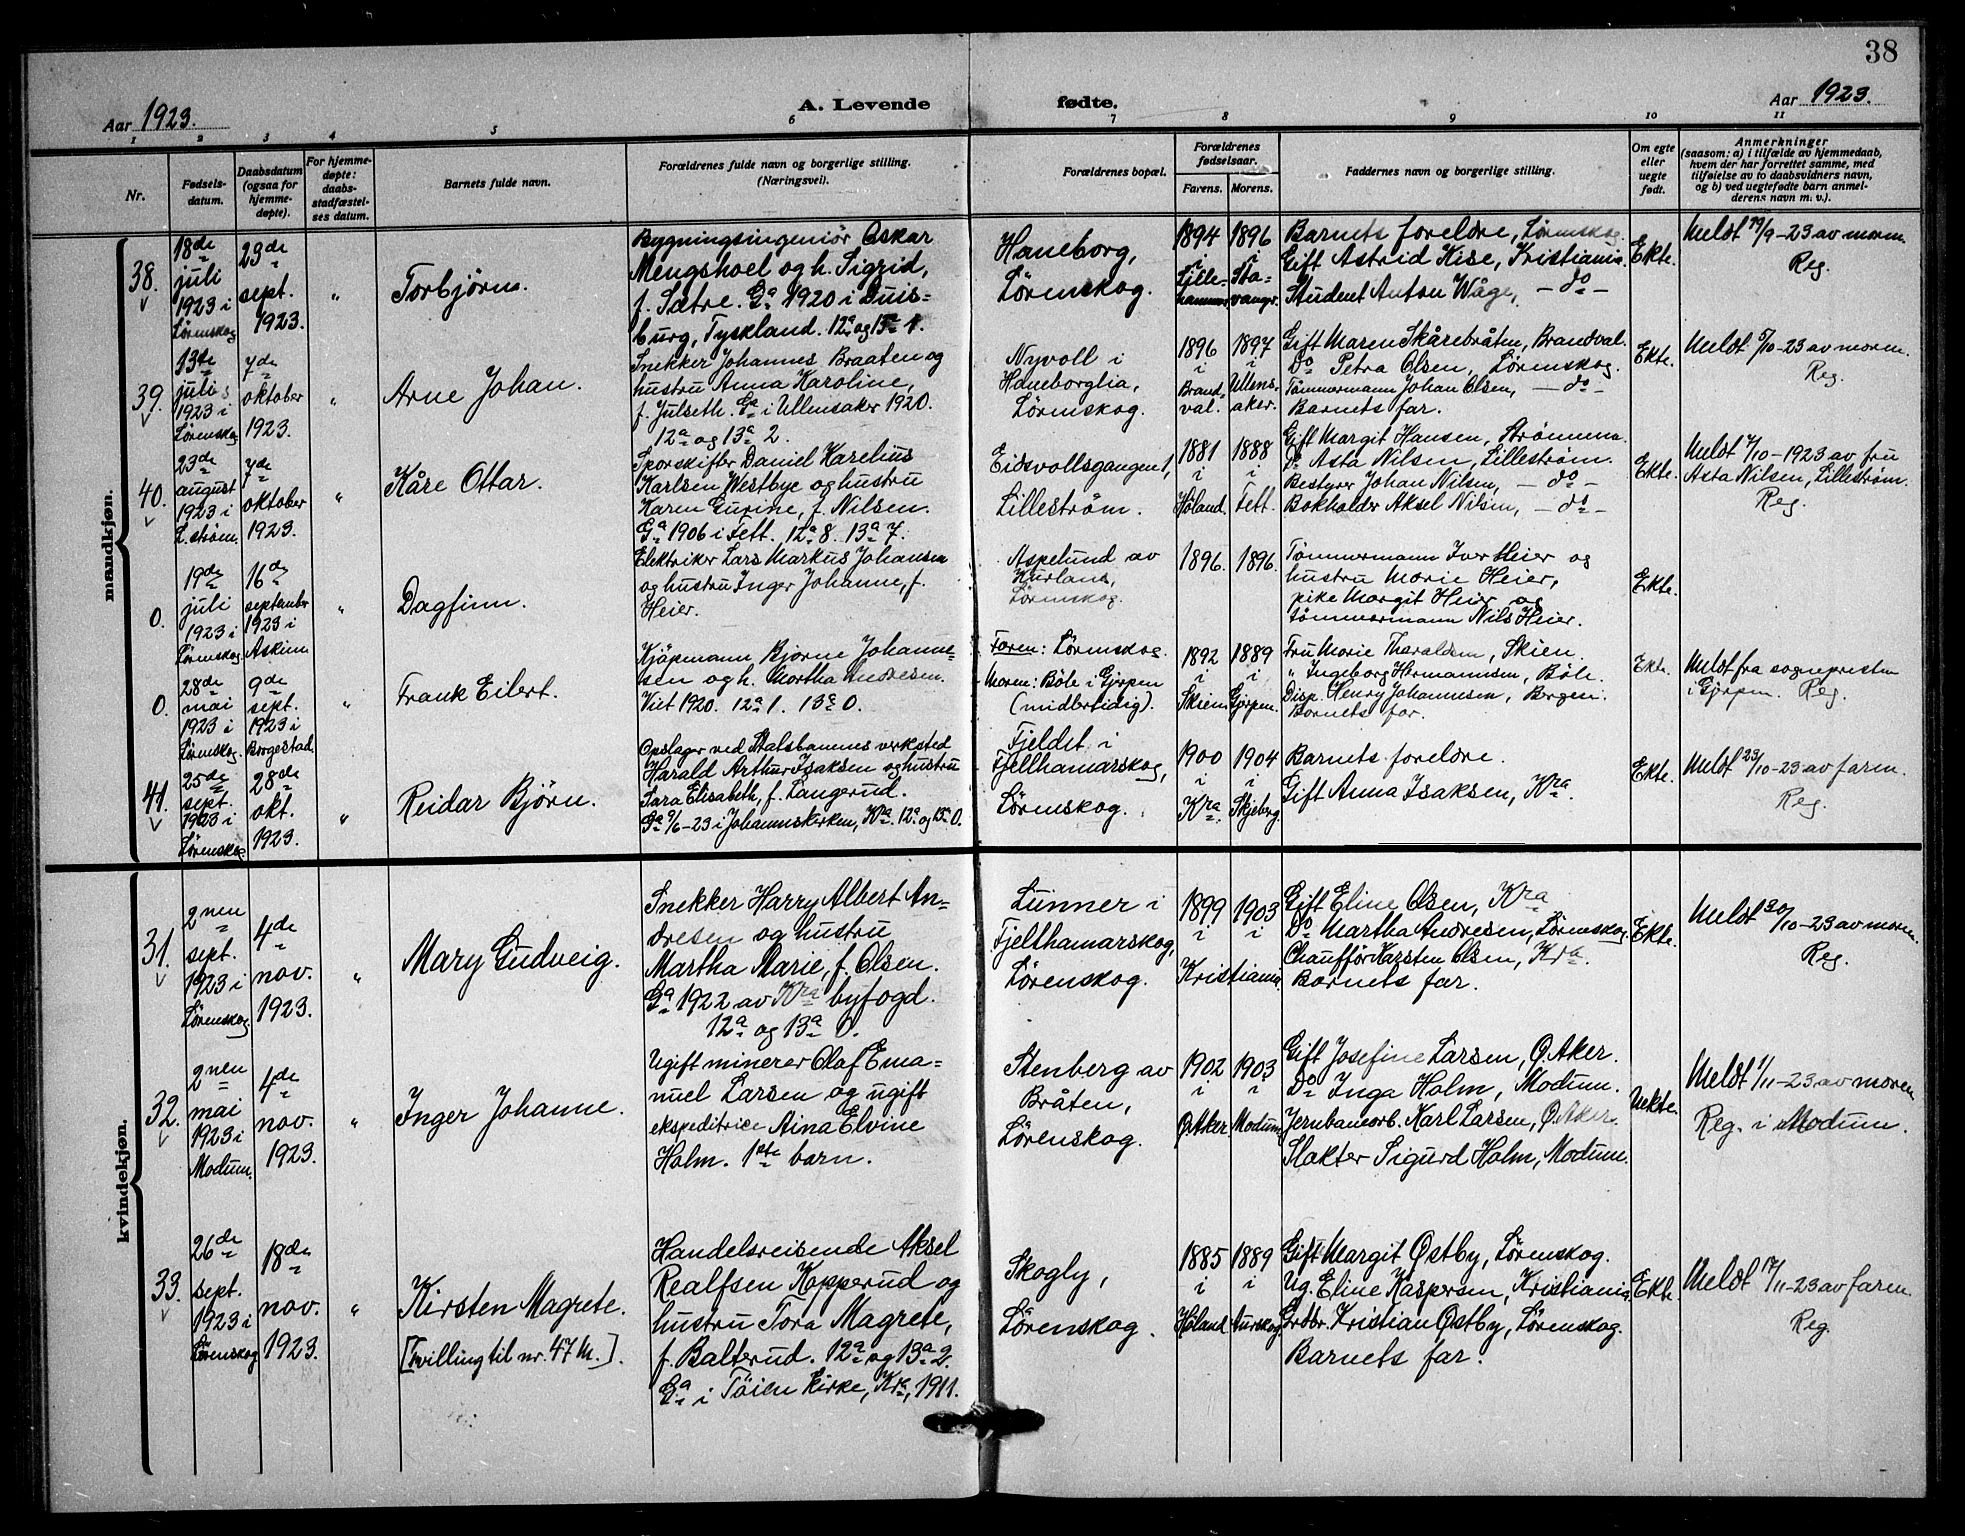 38
Aar 1923.
A. Levende fødte.
Aar 1923.
1 2 3 4 5 6 7 8 9 10 11
Nr.
Fødsels-
datum.
Daabsdatum
(ogsaa for
hjemme-
døpte).
For hjemme-
døpte:
daabs-
stadfæstel-
ses datum.
Barnets fulde navn.
Forældrenes fulde navn og borgerlige stilling.
(Næringsvei).
Forældrenes bopæl.
Forældrenes
fødselsaar.
Farens. Morens.
Faddernes navn og borgerlige stilling.
Om egte
eller
uegte
født.
Anmerkninger
(saasom: a) i tilfælde av hjemmedaab,
hvem der har forrettet samme, med
tilføielse av to daabsvidners navn,
og b) ved uegtefødte barn anmel-
derens navn m. v.).
mandkjøn.
38.
18de
juli
1923 i
Lørenskog
23de
sept.
1923.
"
Torbjørn.
Bygningsingeniør Oskar
Mengshoel og h. Sigrid,
f. Sætre. Ga 1920 i Duis-
burg, Tyskland. 12a og 13a 1.
Haneborg,
Lørenskog.
1894
i
Lille-
hammer
1896
i
Sta-
vanger.
Barnets foreldre, Lørenskog.
Gift Astrid Kise, Kristiania.
Student Anton Wåge, - do -
Ekte.
Meldt 19/9-23 av moren.
Reg.
39.
13de
juli
1923 i
Lørenskog
7de
oktober
1923.
"
Arne Johan.
Snekker Johannes Braaten og
hustru Anna Karoline,
f. Julseth. Ga i Ullensaker 1920.
12a og 13a 2.
Nyvoll i
Haneborglia,
Lørenskog.
1896
i
Brand-
val.
1897
i
Ullens-
aker.
Gift Maren Skårebråten, Brandval.
Do Petra Olsen, Lørenskog.
Tømmermann Johan Olsen, - do -
Barnets far.
Ekte.
Meldt 5/10-23 av moren.
Reg.
40.
23de
august
1923 i
L.strøm.
7de
oktober
1923.
"
Kåre Ottar.
Sporskifter Daniel Karelius
Karlsen Westbye og hustru
Karen Gurine, f. Nilsen.
Ga 1906 i Fett. 12a 8. 13a 7.
Eidsvollsgangen 1,
Lillestrøm.
1881
i
Høland.
1888
i
Fett.
Gift Margit Hansen, Strømmen.
Do Asta Nilsen, Lillestrøm.
Bestyrer Johan Nilsen, - do -
Bokholder Aksel Nilsen, - do -
Ekte.
Meldt 7/10-1923 av fru
Asta Nilsen, Lillestrøm.
Reg.
0.
19de
juli
1923 i
Lørenskog.
16de
september
1923 i
Askim
"
Dagfinn.
Elektriker Lars Markus Johansen
og hustru Inger Johanne, f.
Heier.
Aspelund av
Kurland,
Lørenskog.
1896.
1896.
Tømmermann Iver Heier og
hustru Marie Heier,
pike Margit Heier og
tømmermann Nils Heier.
Ekte.
0.
28de
mai
1923 i
Lørenskog
9de
sept.
1923 i
Borgestad.
"
Frank Eilert.
Kjøpmann Bjarne Johanne-
sen og h. Martha Andresen.
Viet 1920. 12a 1. 13a 0.
Faren: Lørenskog.
Moren: Bøle i Gjerpen
(midlertidig).
1892
i
Skien.
1889
i
Gjerpen.
Fru Marie Tharaldsen, Skien.
" Ingeborg Hermannsen, Bøle.
Disp. Henry Johannesen, Bergen.
Barnets far.
Ekte.
Meldt fra sognepresten
i Gjerpen. Reg.
41.
25de
sept.
1923 i
Lørenskog
28de
okt.
1923.
"
Reidar Bjørn.
Opslager ved Statsbanenes verksted
Harald Arthur Isaksen og hustru
Sara Elisabeth, f. Langerud.
Ga 9/6-23 i Johanneskirken, Kra. 12a og 13a 0.
Fjeldet i
Fjellhamarskog,
Lørenskog.
1900
i
Kra.
1904
i
Skjeberg.
Barnets foreldre.
Gift Anna Isaksen, Kra.
Ekte.
Meldt 23/10-23 av faren.
Reg.
kvindekjøn.
31.
2nen
sept.
1923 i
Lørenskog
4de
nov.
1923.
"
Mary Gudveig.
Snekker Harry Albert An-
dresen og hustru
Martha Marie, f. Olsen.
Ga 1922 av Kra byfogd.
12a og 13a 0.
Lunner i
Fjellhamarskog,
Lørenskog.
1899
i
1903
i
Kristiania.
Gift Eline Olsen, Kra
Do Martha Andresen, Lørenskog.
Chauffør Karsten Olsen, Kra.
Barnets far.
Ekte.
Meldt 30/10-23 av moren.
Reg.
32.
2nen
mai
1923 i
Modum.
4de
nov.
1923.
"
Inger Johanne.
Ugift minerer Olaf Ema-
nuel Larsen og ugift
ekspeditrice Aina Elvine
Holm. 1ste barn.
Stenberg av
Bråten,
Lørenskog.
1902
i
Ø.Aker.
1903
i
Modum
Gift Josefine Larsen, Ø. Aker.
Do Inga Holm, Modum.
Jernbanearb. Karl Larsen, Ø. Aker.
Slakter Sigurd Holm, Modum.
Uekte.
Meldt 1/11-23 av moren
Reg. i Modum.
33.
26de
sept.
1923 i
Lørenskog
18de
nov.
1923.
"
Kirsten Magrete.
[Tvilling til nr. 47 M.].
Handelsreisende Aksel
Realfsen Kopperud og
hustru Tora Magrete,
f. Balterud. 12a og 13a 2.
Ga i Tøien kirke, Kra, 1911.
Skogly,
Lørenskog.
1885
i
Høland
1889
i
Aurskog
Gift Margit Østby, Lørenskog.
Ug. Eline Kaspersen, Kristiania.
Grdbr. Kristian Østby, Lørenskog.
Barnets far.
Ekte.
Meldt 17/11-23 av faren.
Reg.